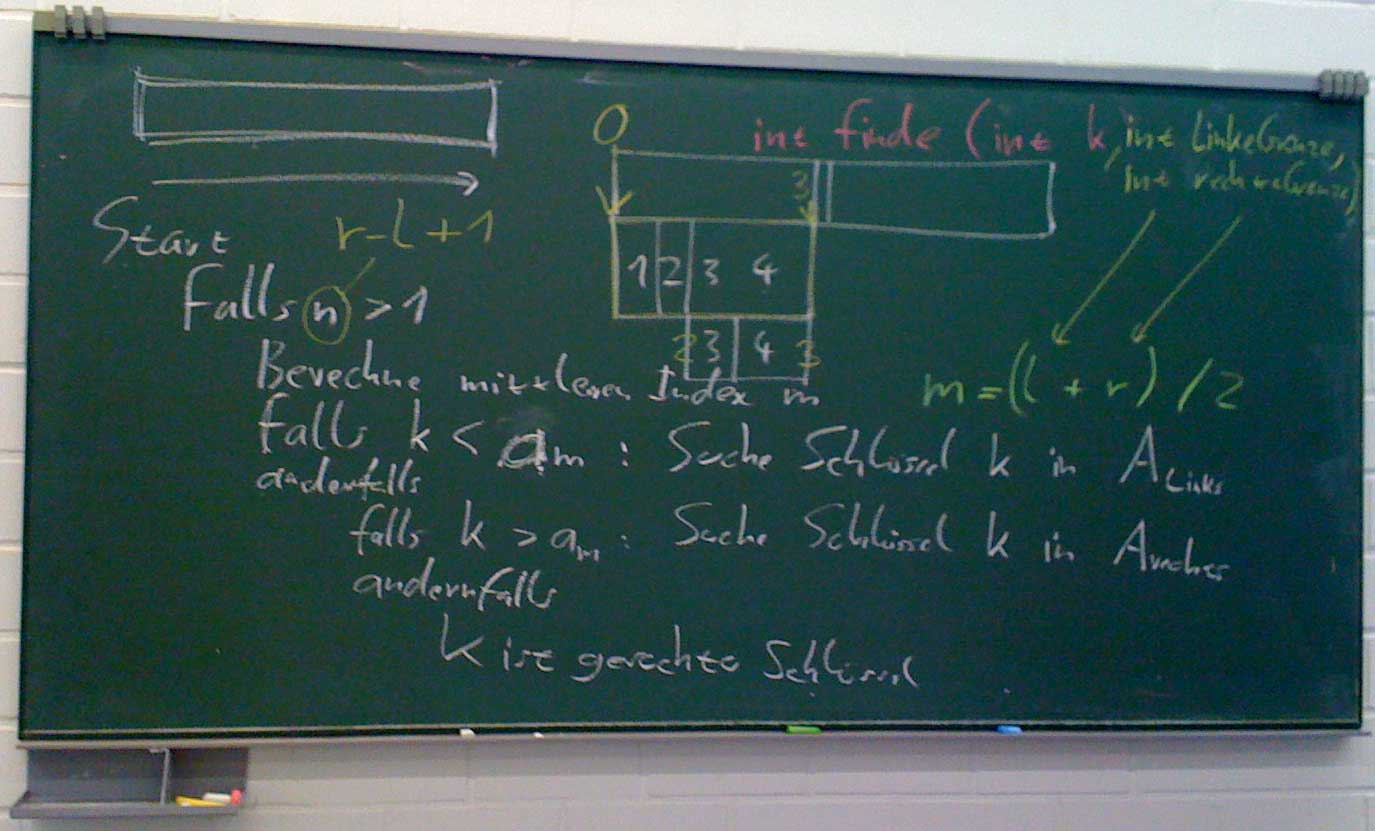 0
int finde (int k, int LinkeGrenze,
int rechteGrenze)
3
Start
r-l+1
Falls n > 1
1 2 3 4
2 3 4 3
Berechne mittleren Index m
m = (l + r) / 2
falls k < am : Suche Schlüssel k in ALinks
andenfalls
falls k > am : Suche Schlüssel k in Arechts
andernfalls
k ist gesuchte Schlüssel